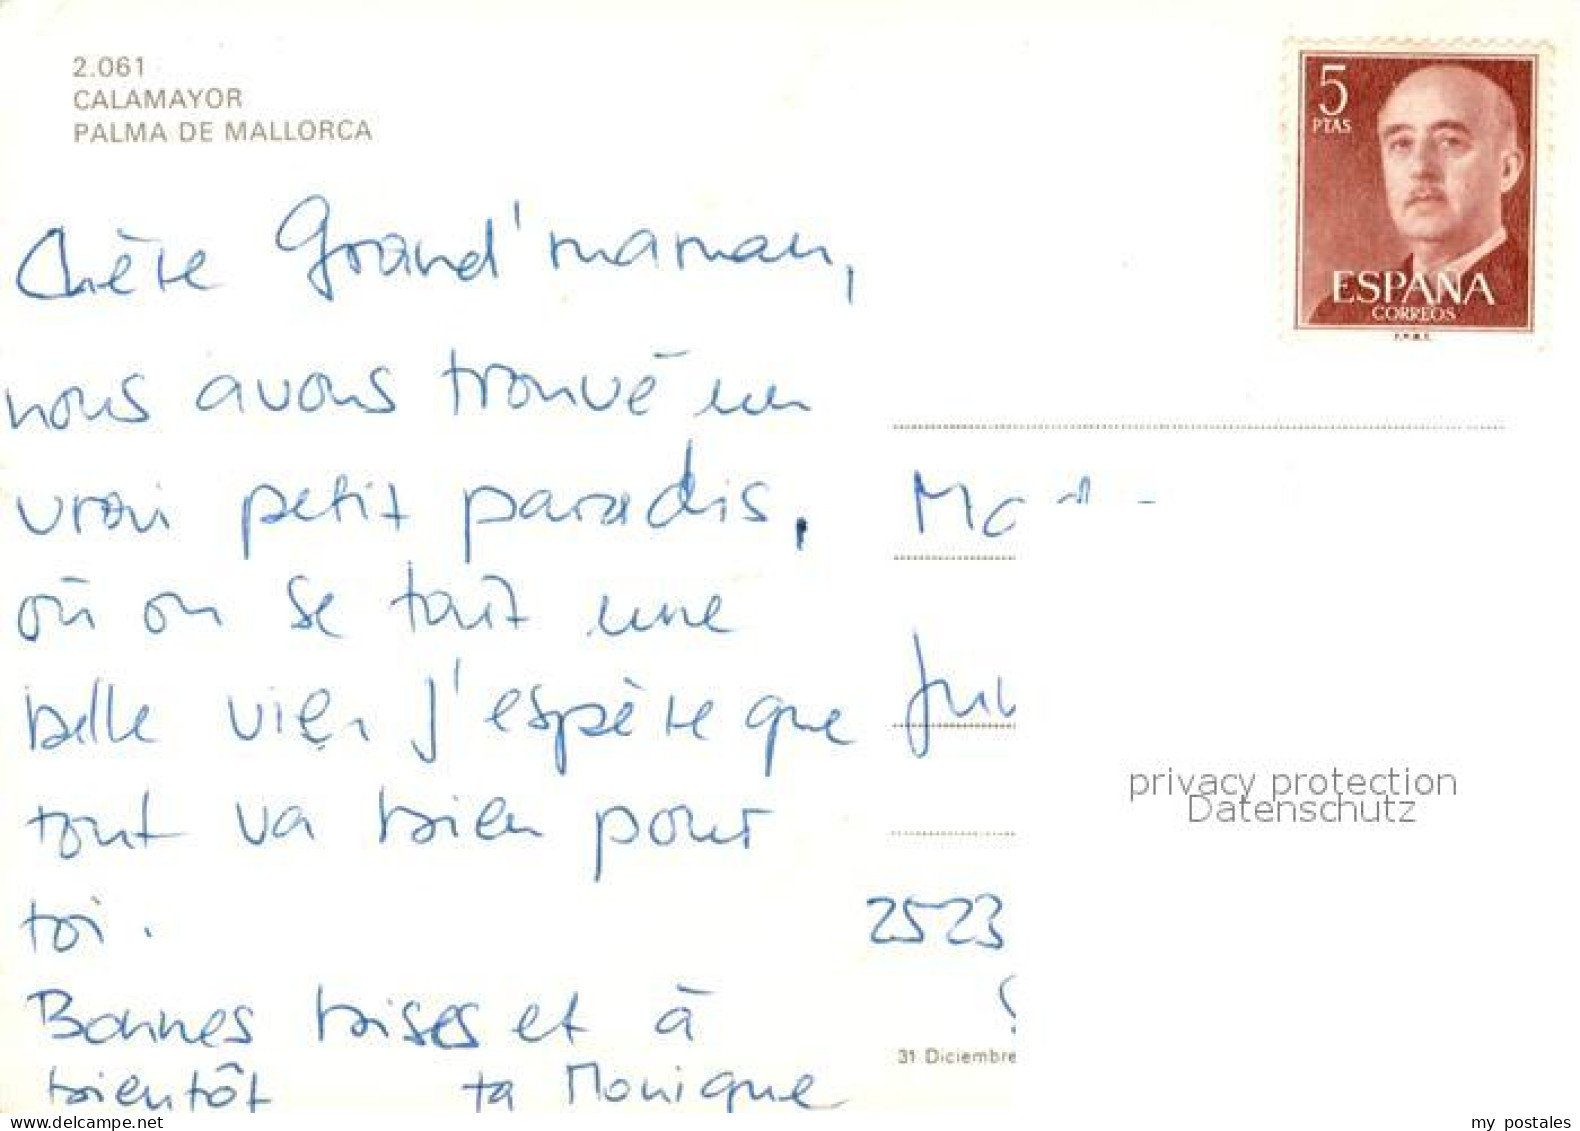 2.061
CALAMAYOR
PALMA DE MALLORCA
5
PTAS
ESPAÑA
CORREOS
F.N.M.T.
Chère Grand'maman,
nous avons trouvé un
vrai petit paradis,
où on se fait une
belle vie. J'espère que
tout va bien pour
toi.
Bonnes bises et à
bientôt ta Monique
2523
31 Diciembre
privacy protection
Datenschutz
www.delcampe.net
my postales